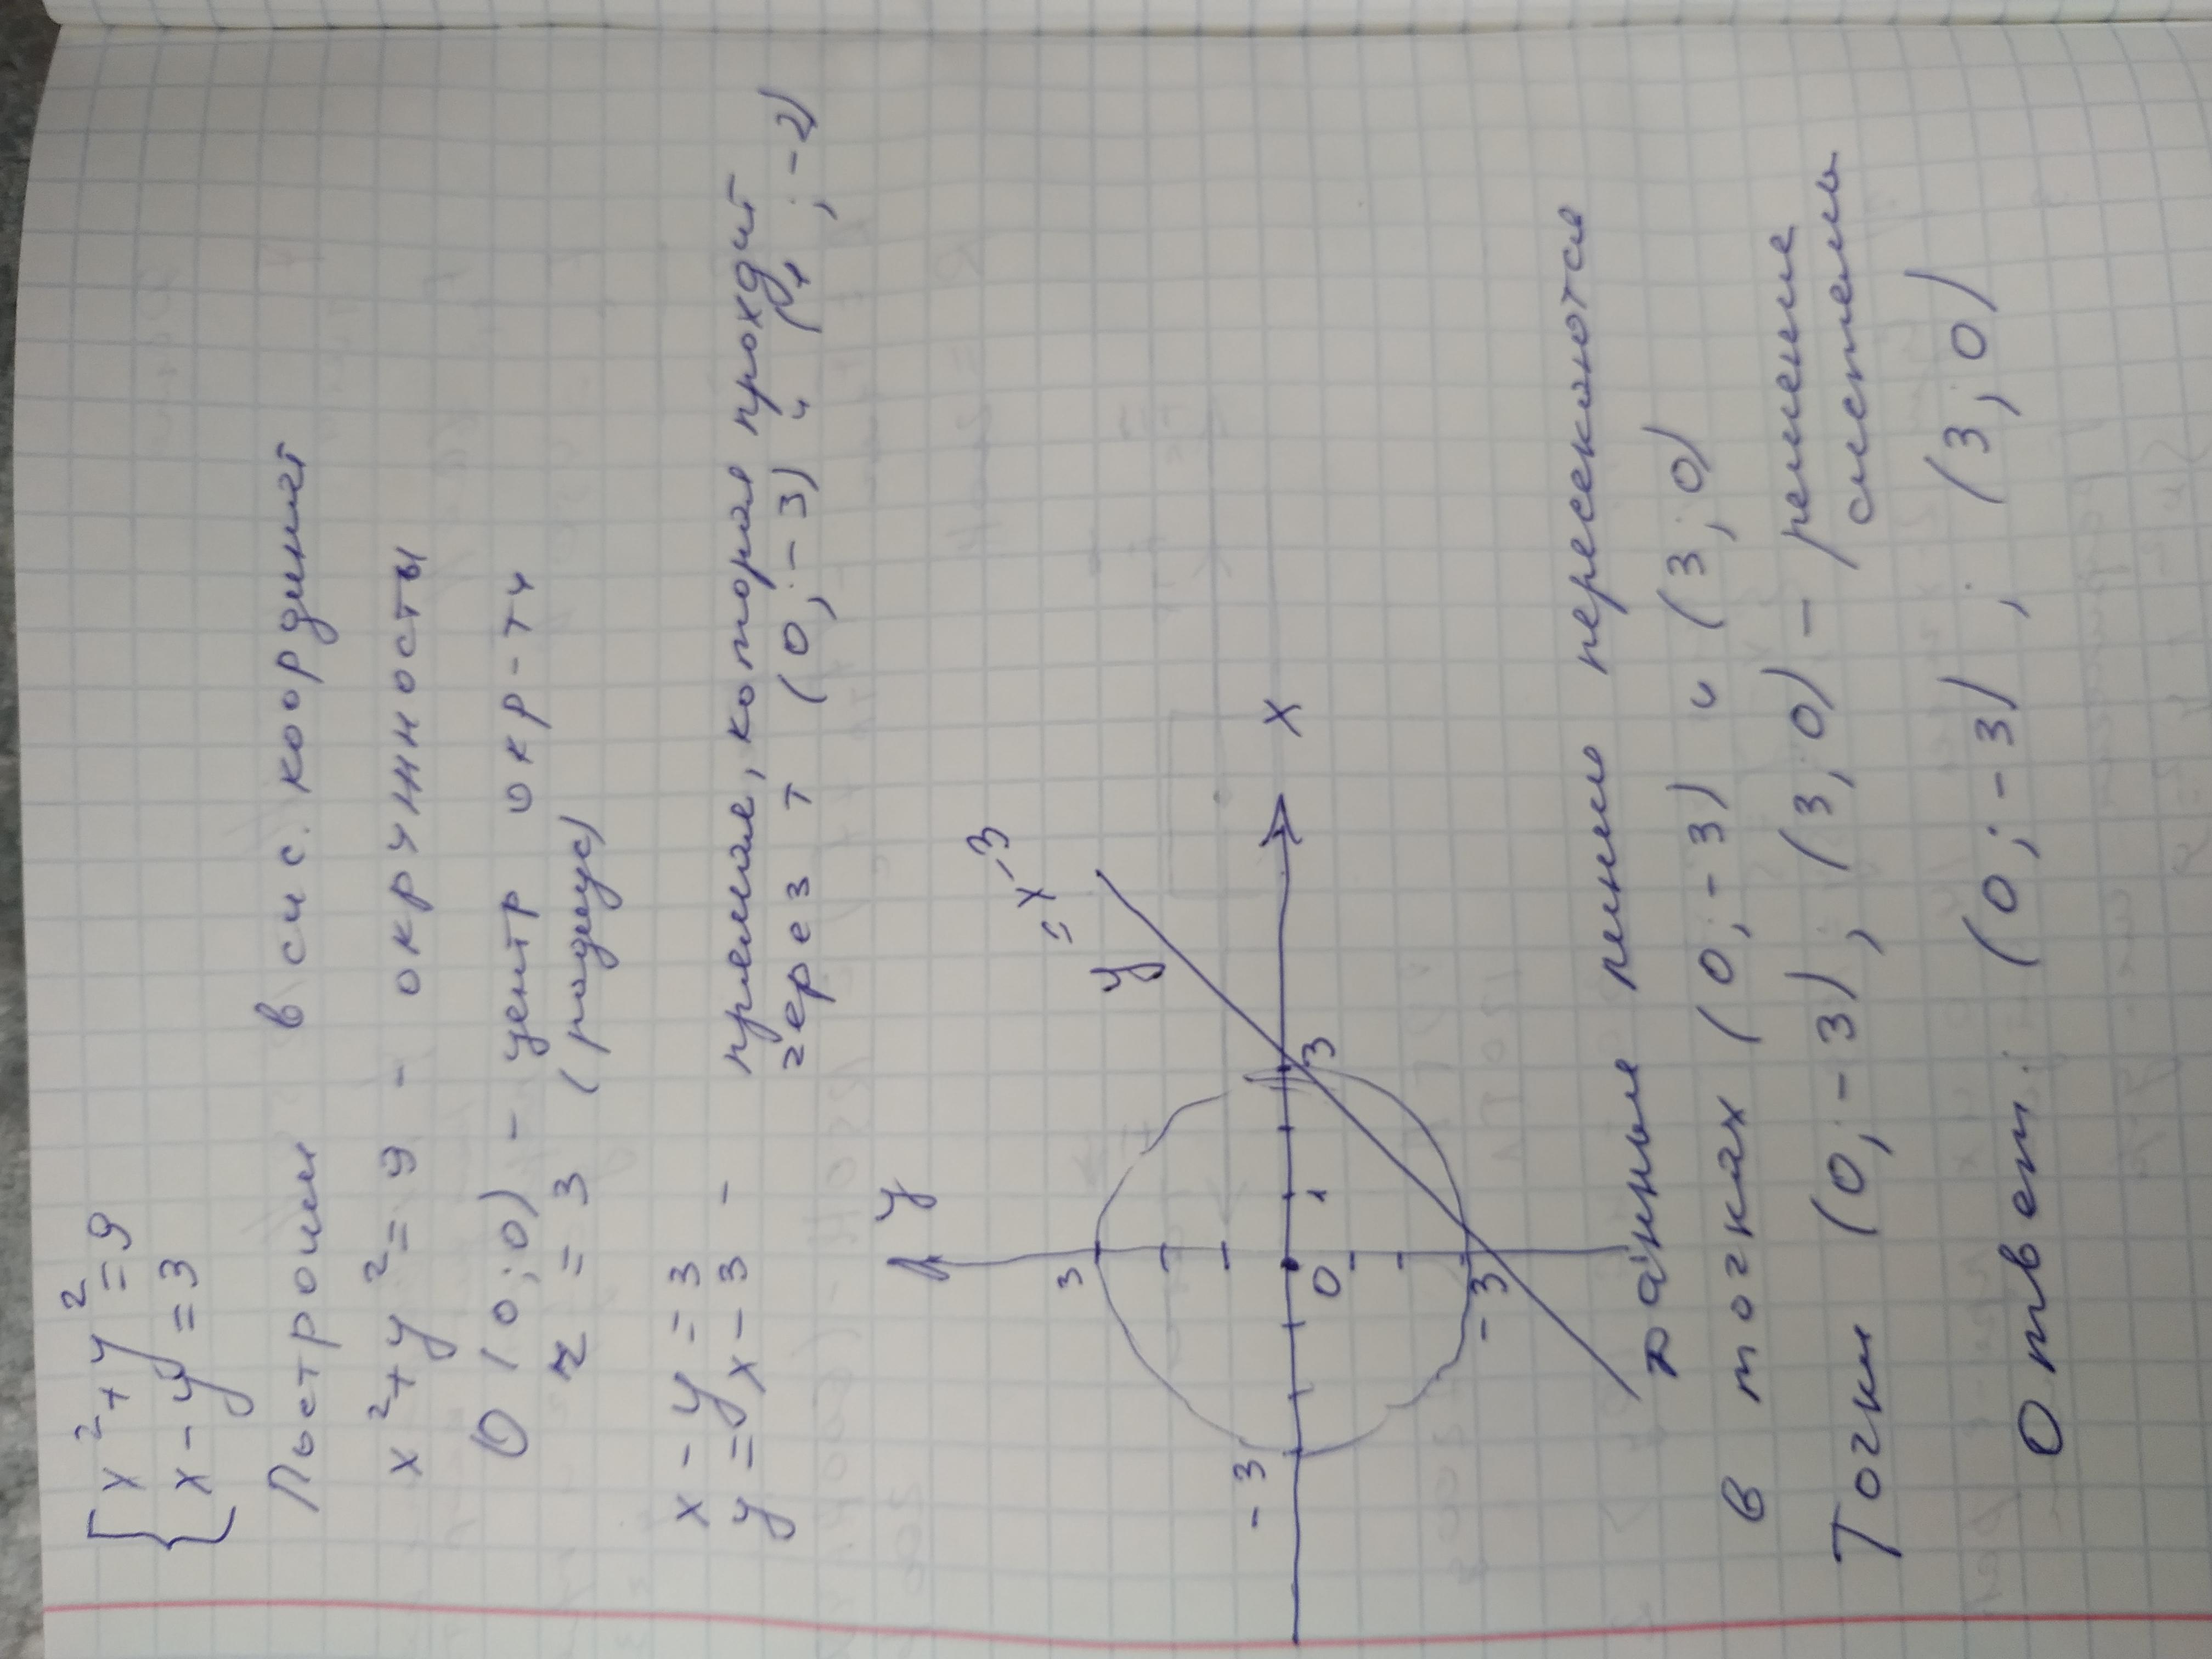 { x² + y² = 9
x - y = 3
Построим в сис. координат
x² + y² = 9 - окружность
O (0; 0) - центр окр-ти
r = 3 (радиус)
x - y = 3
y = x - 3 - прямая, которая проходит
через т (0; -3) и (1; -2)
y
y = x - 3
3
x
-3
0
1
3
-3
данные линии пересекаются
в точках (0; -3) и (3; 0)
Точки (0; -3), (3; 0) - решение
системы
Ответ: (0; -3), (3; 0)